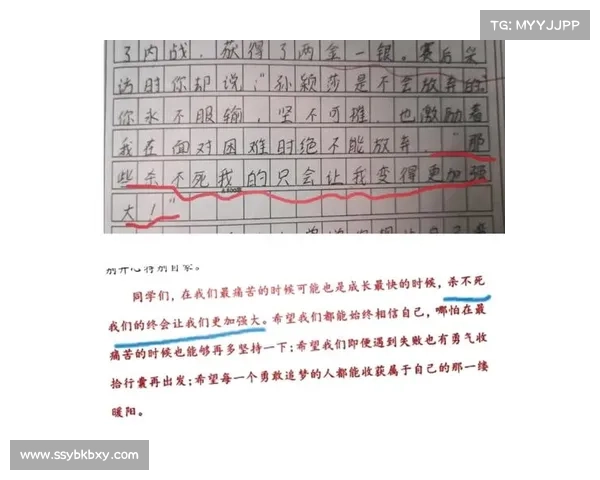 TG: MYYJJPP
了内战，获得了两金一银。赛后采
访时你却说："孙颖莎是不会放弃的。
你永不服输，坚不可摧，也激励着
我在面对困难时绝不能放弃。"那
些杀不死我的只会让我变得更加强
大！"
别开心特别自豪。
同学们，在我们最痛苦的时候可能也是成长最快的时候，杀不死
我们的终会让我们更加强大。希望我们都能始终相信自己，哪怕在最
痛苦的时候也能够再多坚持一下；希望我们即便遇到失败也有勇气收
拾行囊再出发；希望每一个勇敢追梦的人都能收获属于自己的那一缕
暖阳。
www.ssybkbxy.com